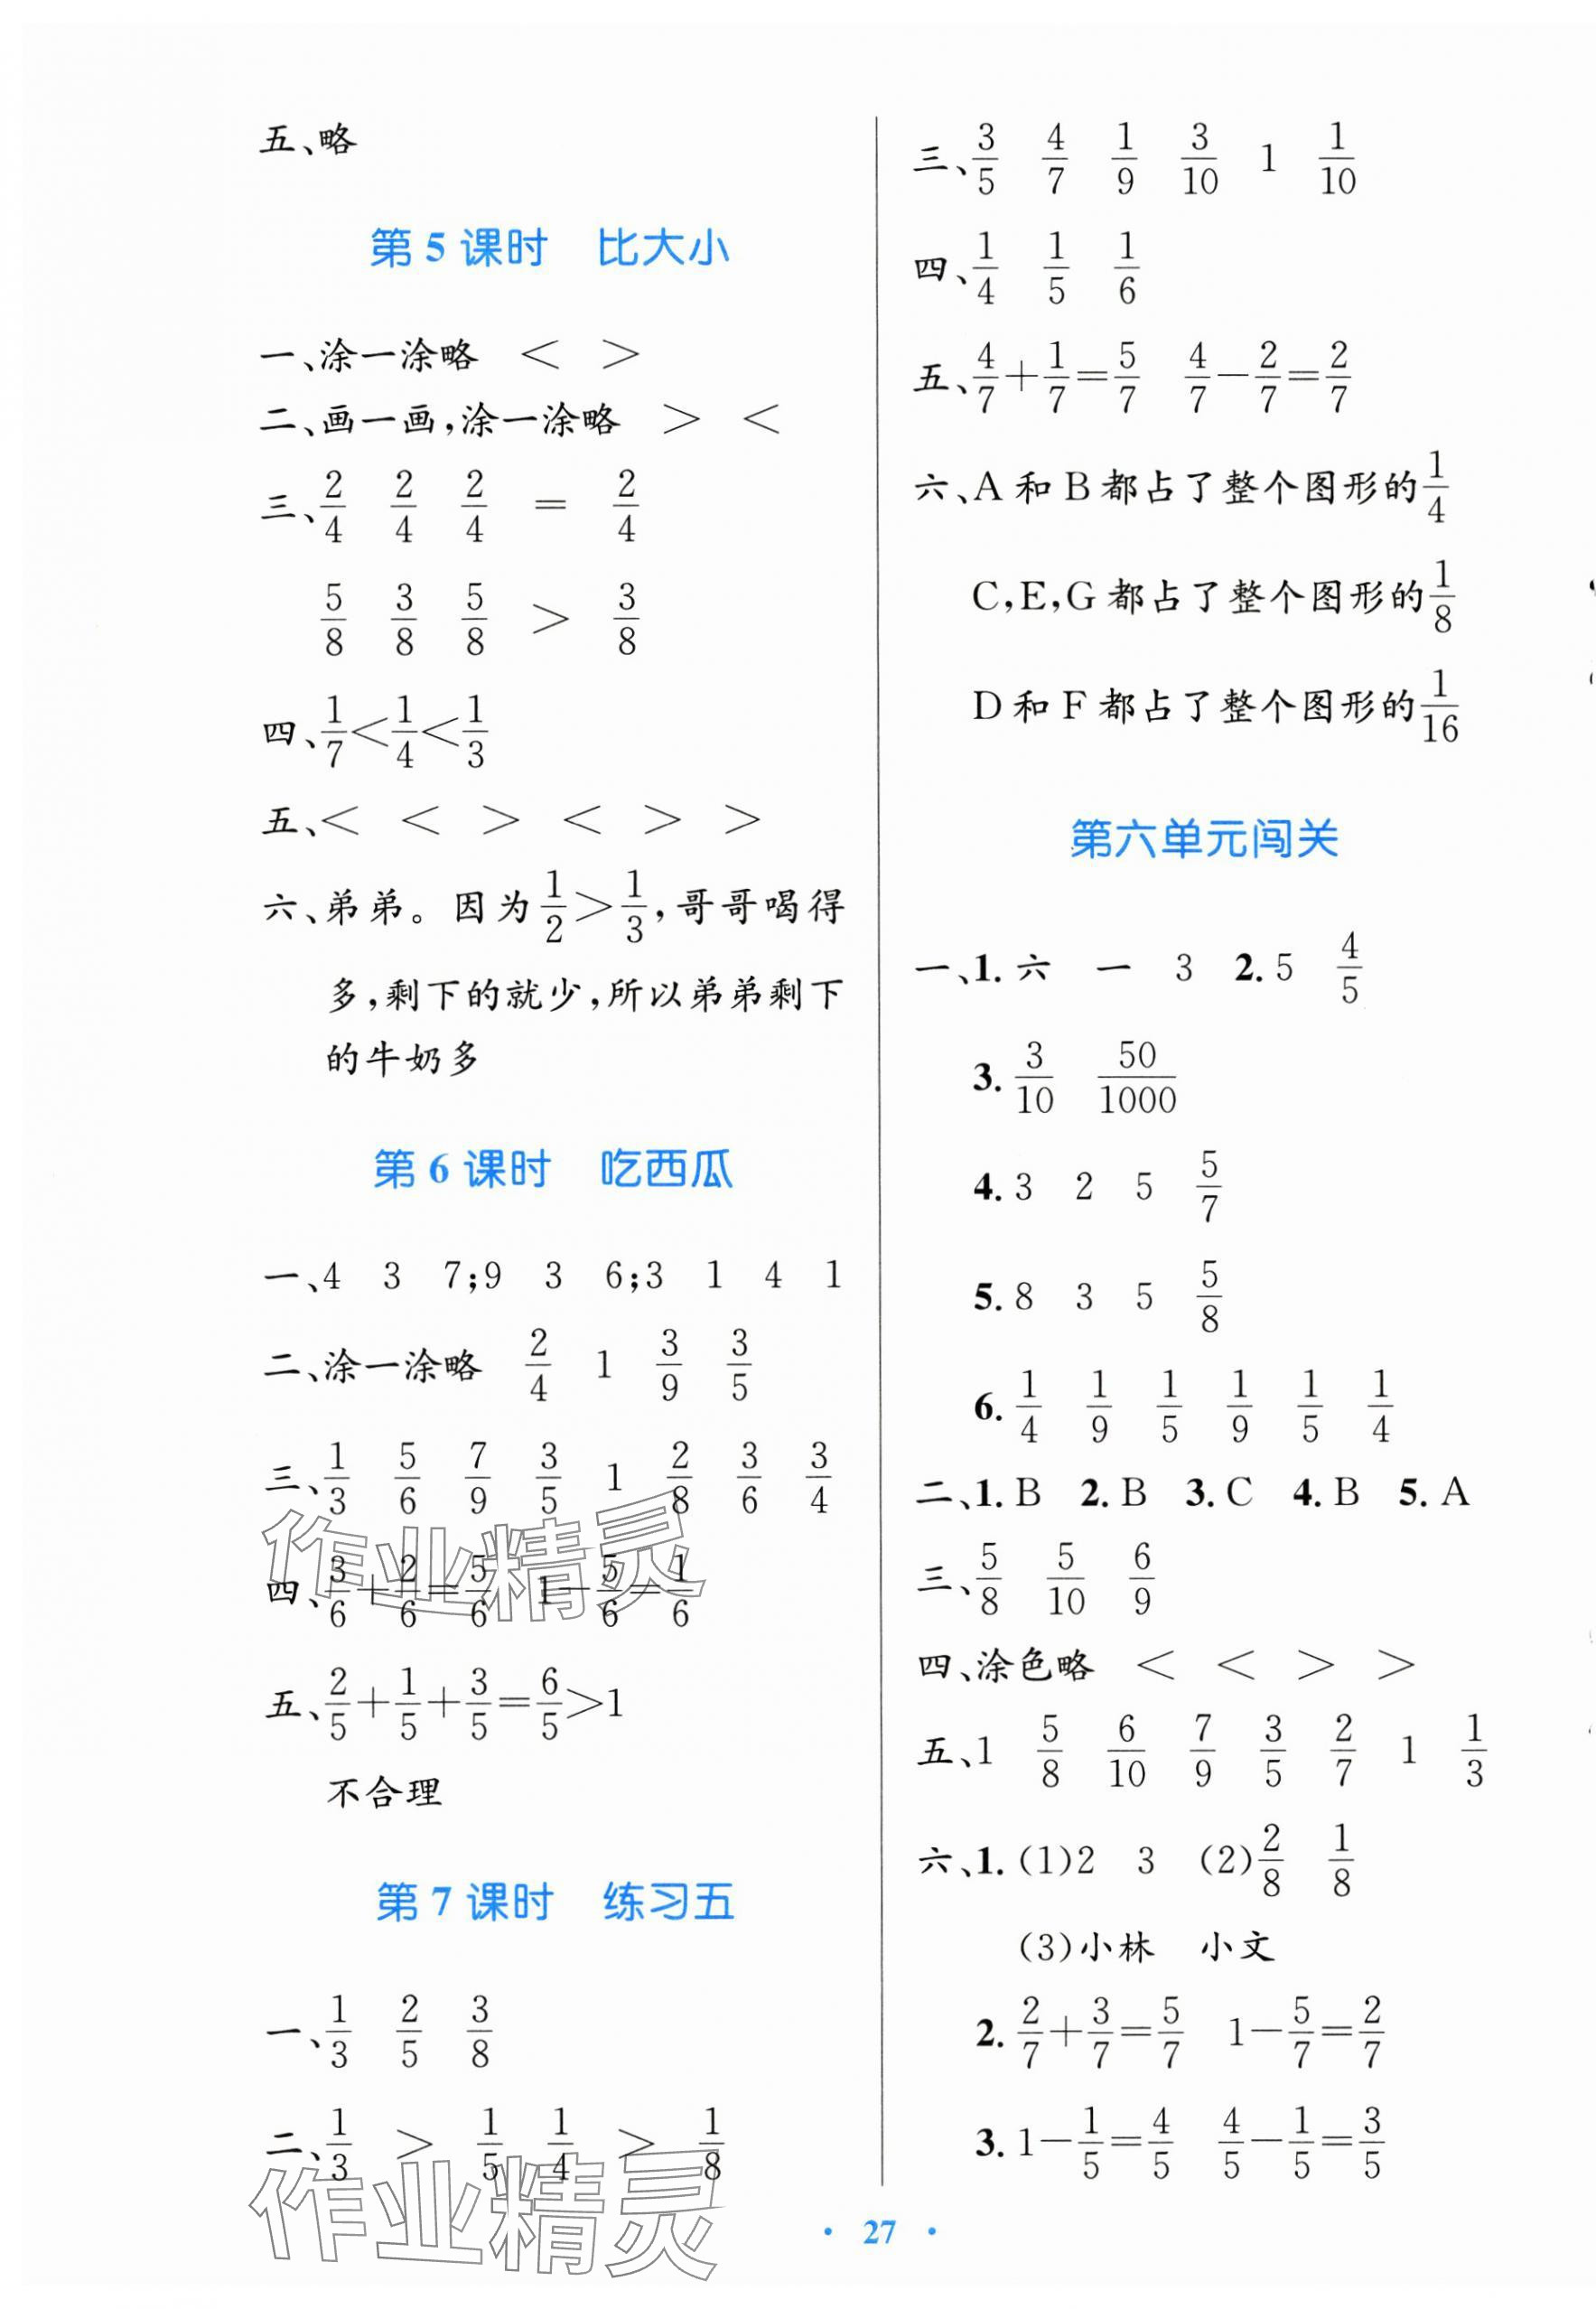 五、略
第 5 课时 比大小
一、涂一涂略 < >
二、画一画,涂一涂略 > <
三、2/4 2/4 2/4 = 2/4
5/8 3/8 5/8 > 3/8
四、1/7<1/4<1/3
五、< < > < > >
六、弟弟。因为1/2>1/3,哥哥喝得
多,剩下的就少,所以弟弟剩下
的牛奶多
第 6 课时 吃西瓜
一、4 3 7;9 3 6;3 1 4 1
二、涂一涂略 2/4 1 3/9 3/5
三、1/3 5/6 7/9 3/5 1 2/8 3/6 3/4
四、3/6+2/6=5/6 1-5/6=1/6
五、2/5+1/5+3/5=6/5>1
不合理
第 7 课时 练习五
一、1/3 2/5 3/8
二、1/3 > 1/5 1/4 > 1/8
三、3/5 4/7 1/9 3/10 1 1/10
四、1/4 1/5 1/6
五、4/7+1/7=5/7 4/7-2/7=2/7
六、A 和 B 都占了整个图形的1/4
C,E,G 都占了整个图形的1/8
D 和 F 都占了整个图形的1/16
第六单元闯关
一、1. 六 一 3 2. 5 4/5
3. 3/10 50/1000
4. 3 2 5 5/7
5. 8 3 5 5/8
6. 1/4 1/9 1/5 1/9 1/5 1/4
二、1. B 2. B 3. C 4. B 5. A
三、5/8 5/10 6/9
四、涂色略 < < > >
五、1 5/8 6/10 7/9 3/5 2/7 1 1/3
六、1. (1)2 3 (2)2/8 1/8
(3)小林 小文
2. 2/7+3/7=5/7 1-5/7=2/7
3. 1-1/5=4/5 4/5-1/5=3/5
· 27 ·
作业精灵
作业精灵